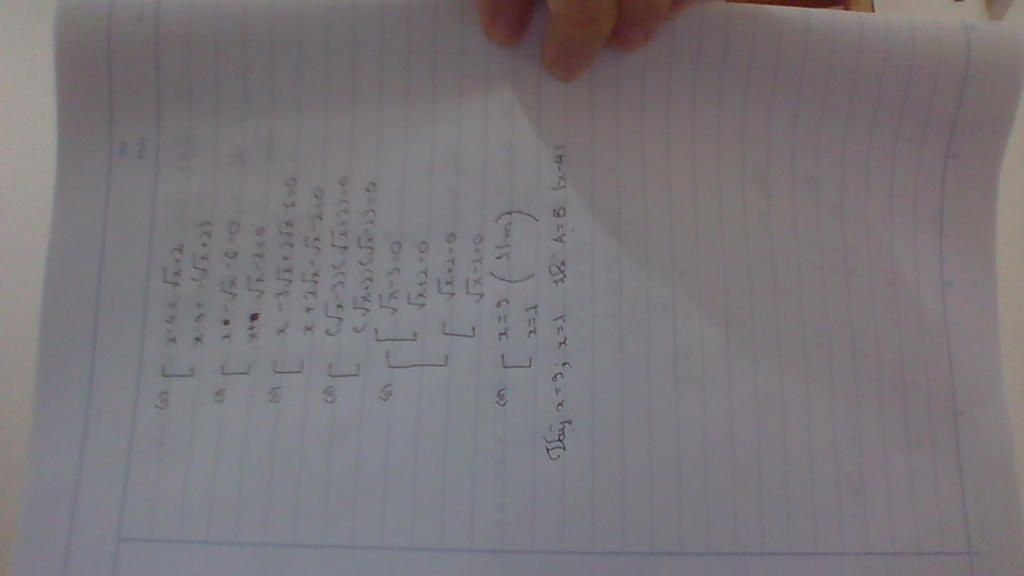 (=) [ x-4 = √x+2
x-4 = -(√x+2)
(=) [ x - √x - 6 = 0
x + √x - 2 = 0
(=) [ x - 3√x + 2√x - 6 = 0
x + 2√x - √x - 2 = 0
(=) [ (√x-3)(√x+2) = 0
(√x+2)(√x-1) = 0
(=) [ [ √x-3=0
√x+2=0
[ √x+2=0
√x-1=0
(=) [ x=9 (thm)
x=1
Vậy x=9; x=1 thì A=B|x-4|